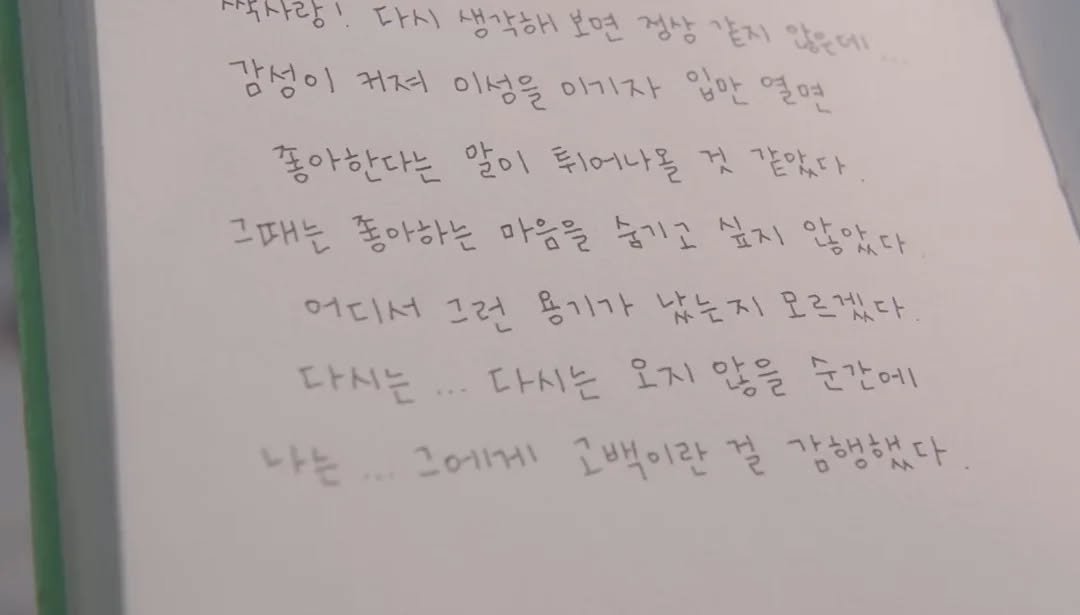 짝사랑! 다시 생각해 보면 정상 같지 않은데...
감성이 커져 이성을 이기자 입만 열면
좋아한다는 말이 튀어나올 것 같았다.
그때는 좋아하는 마음을 숨기고 싶지 않았다.
어디서 그런 용기가 났는지 모르겠다.
다시는... 다시는 오지 않을 순간에
나는... 그에게 고백이란 걸 감행했다.